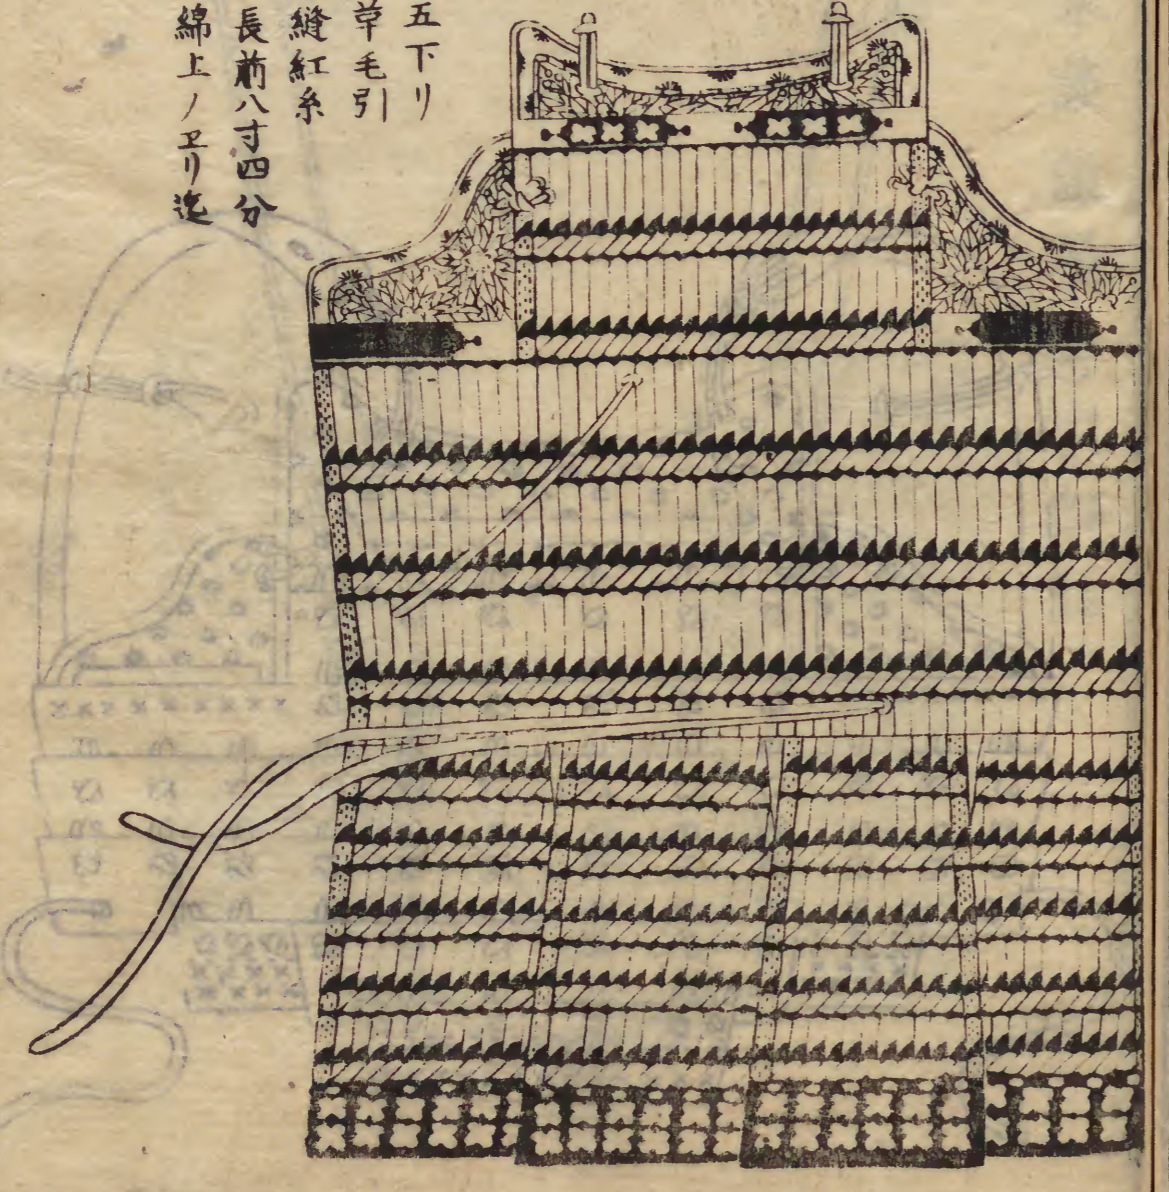 五下リ
草毛引
縫紅糸
長前八寸四分
綿上ノヱリ迄